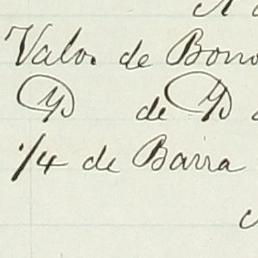 Valor de Bono
YD de YD
1/4 de Barra